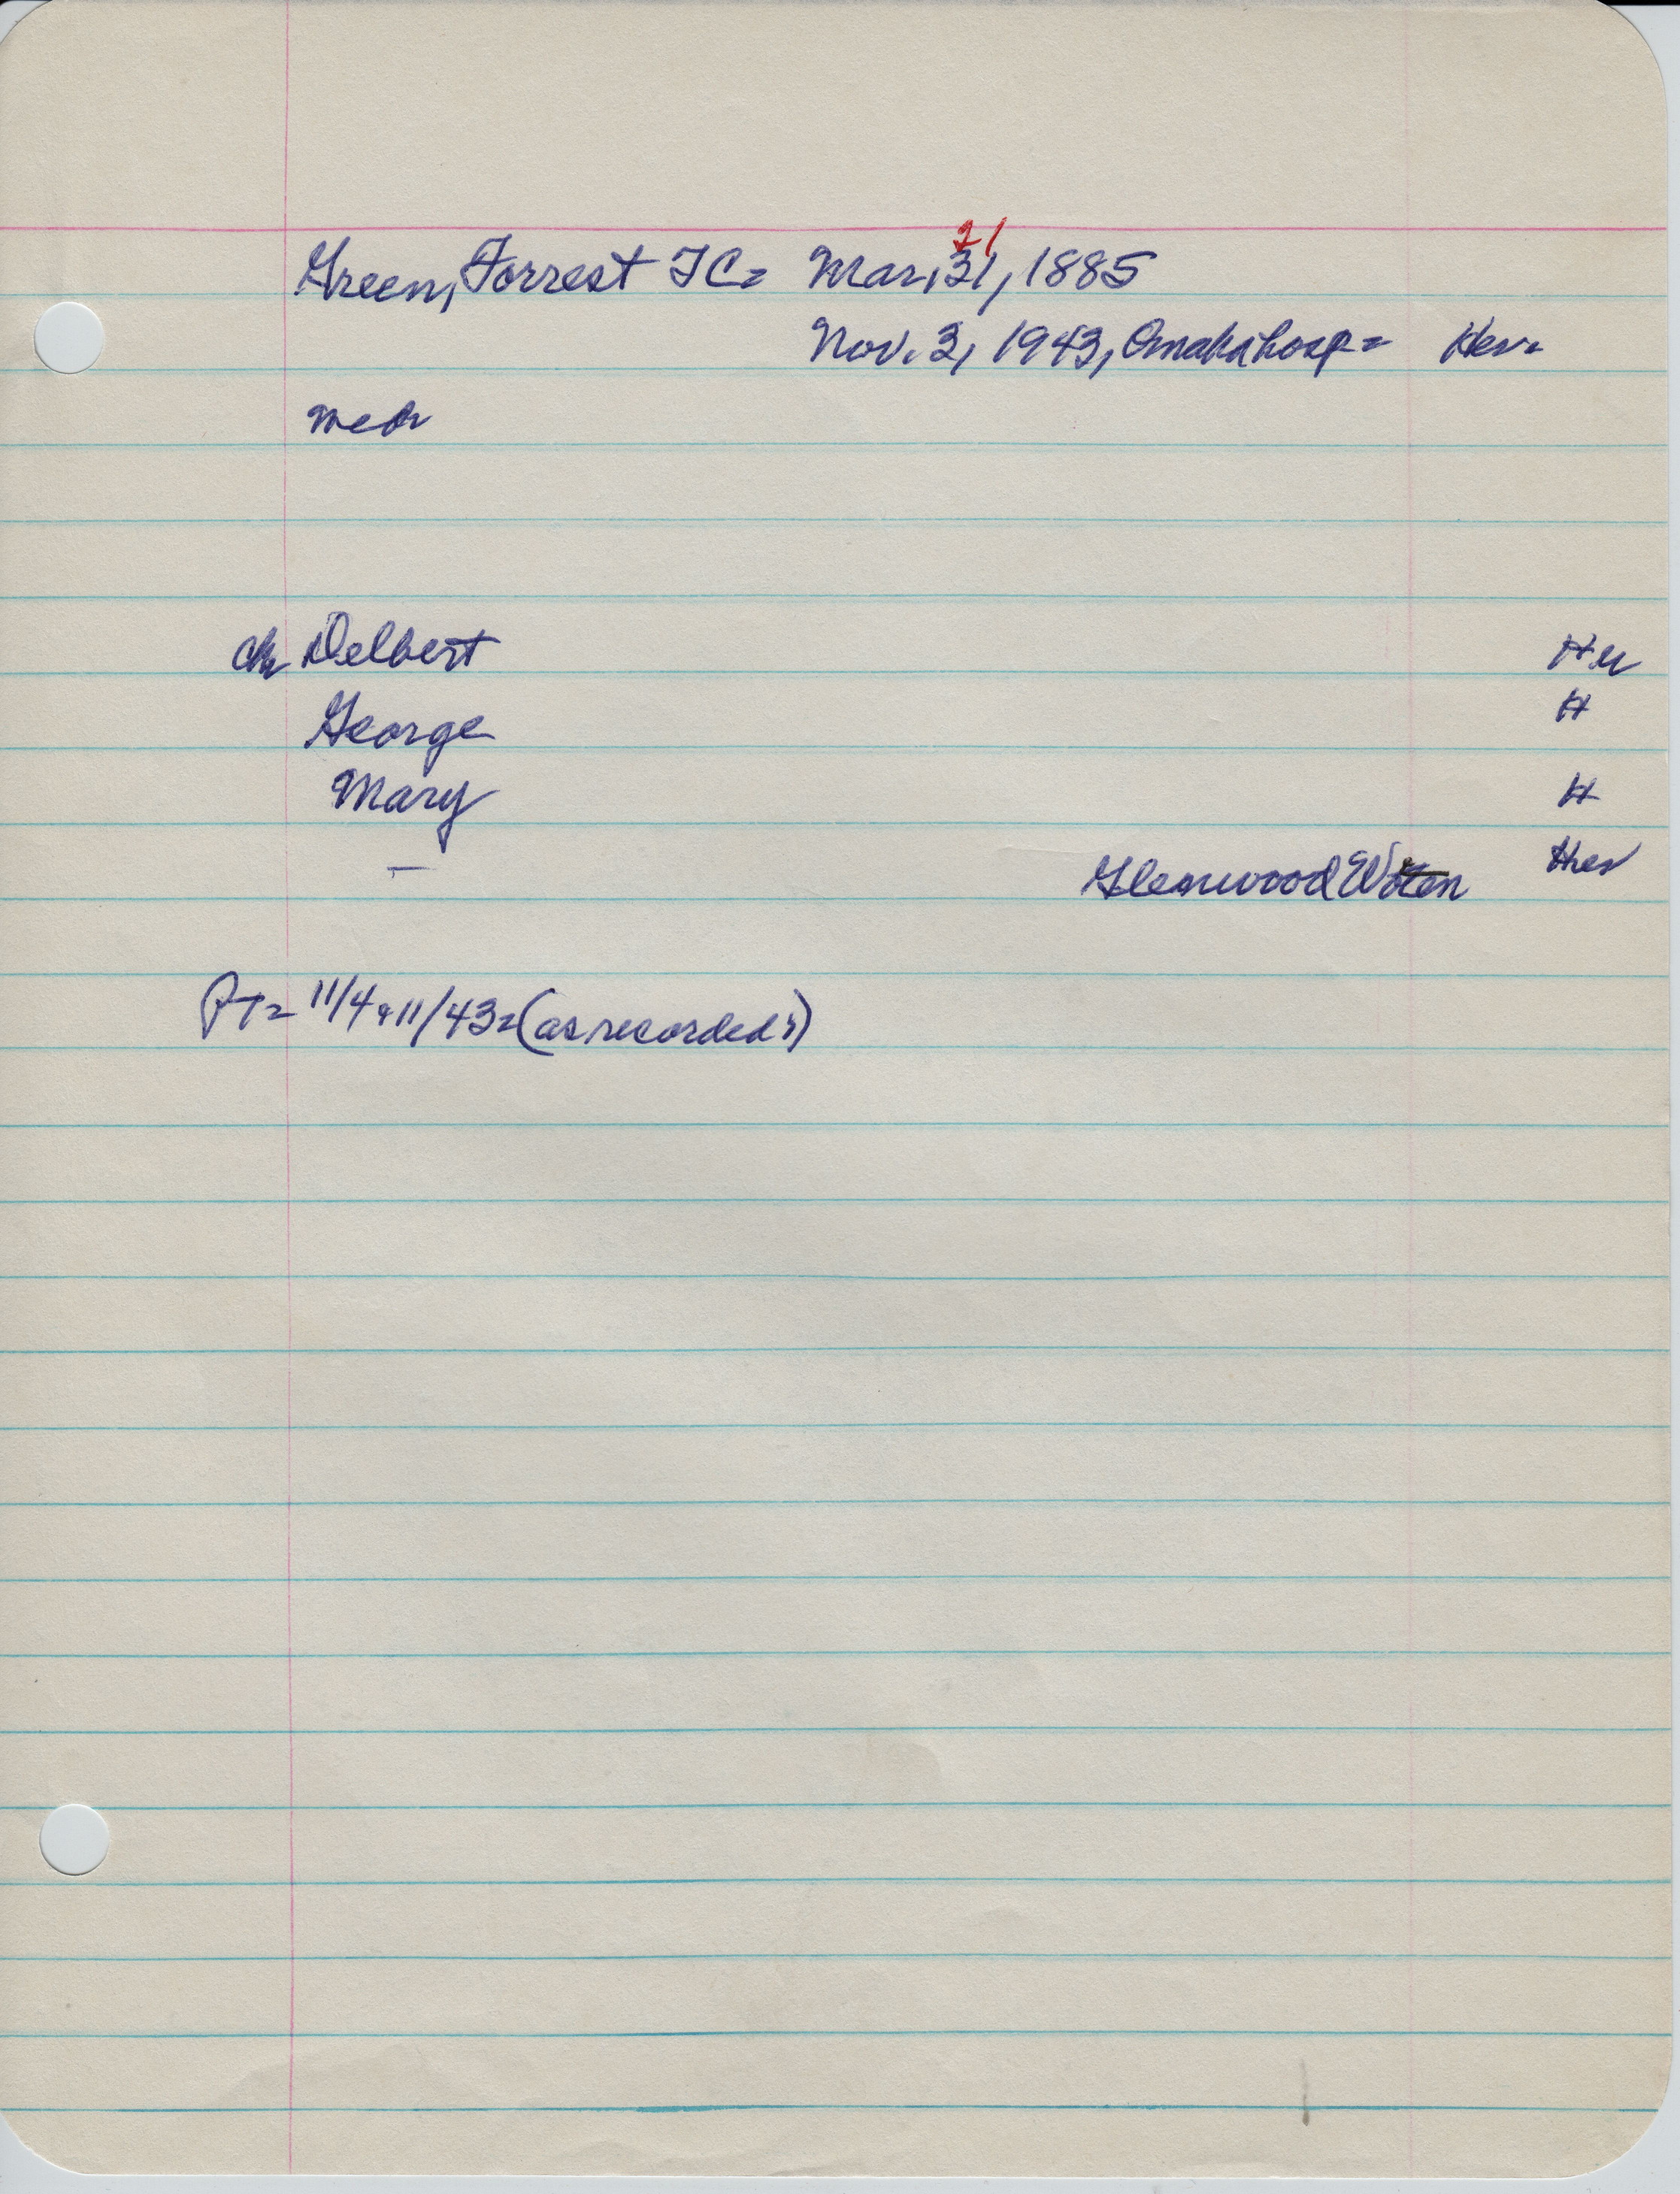 21
Green, Forrest TC= Mar. 31, 1885
Nov. 3, 1943, Omaha hosp= Her=
med=
ch Delbert H
George H
Mary H
— Glenwood Woten Her
PT= 11/4 & 11/43= (as recorded)